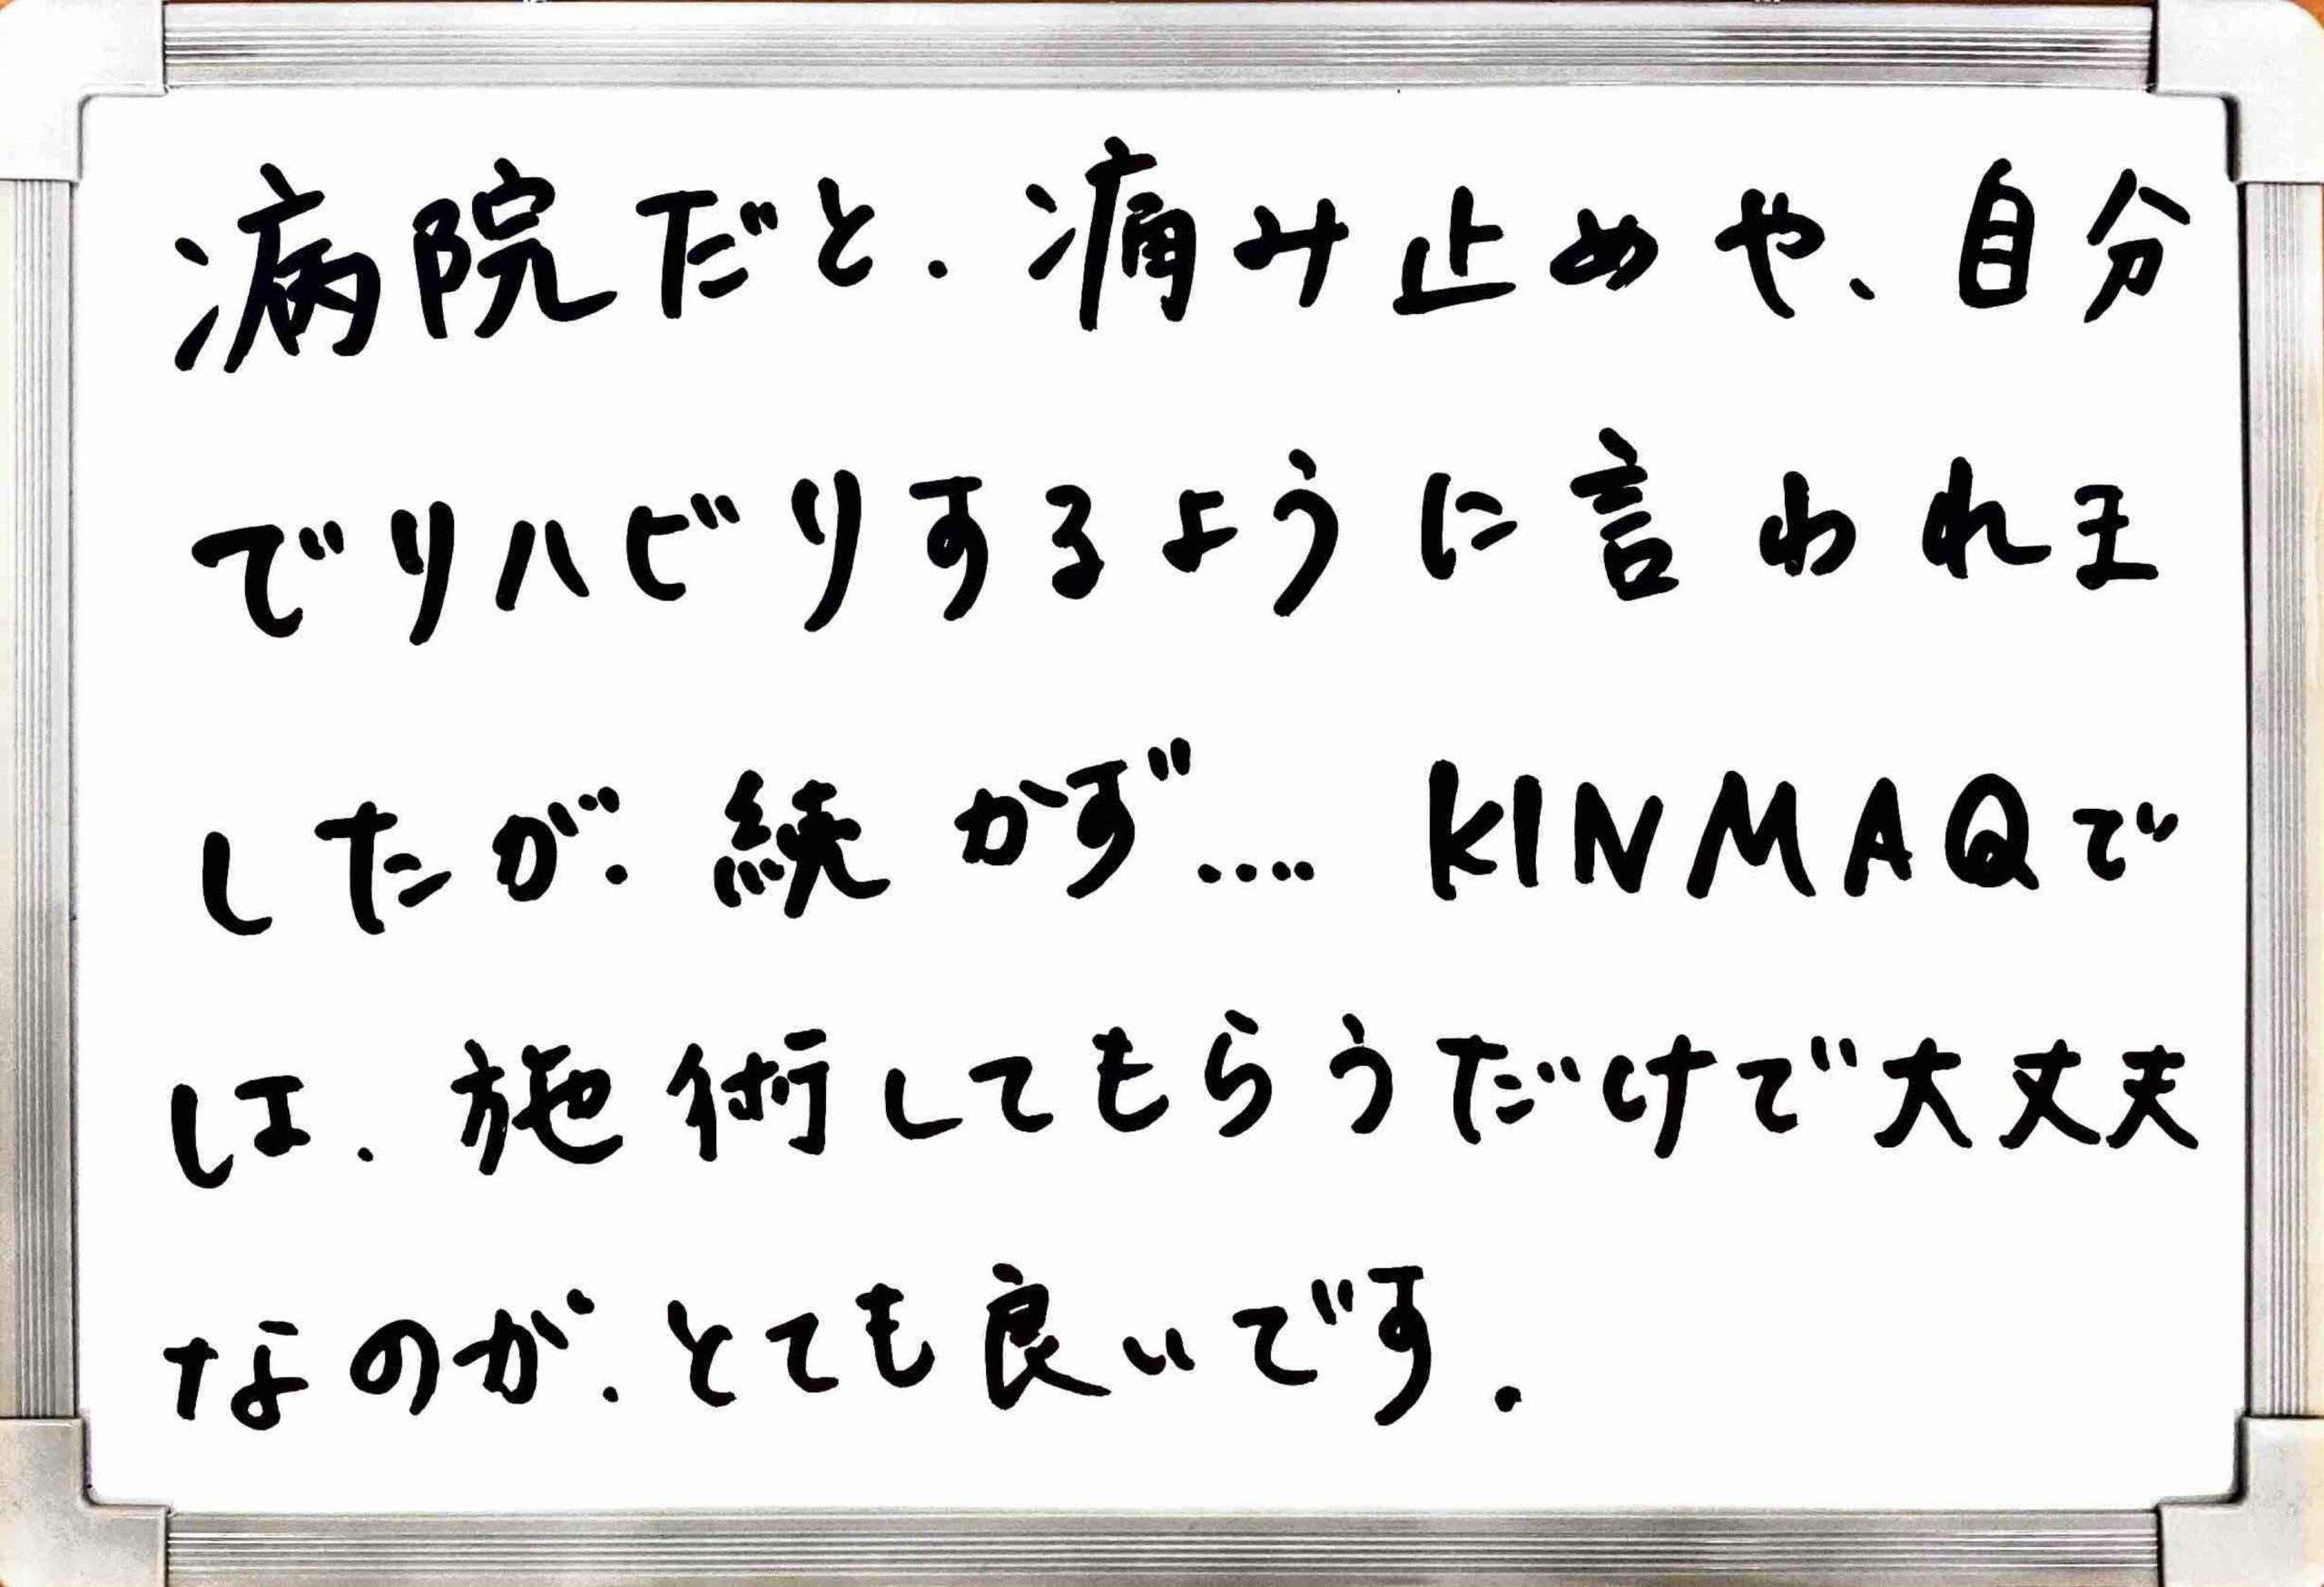 病院だと、痛み止めや、自分
でリハビリするように言われま
したが、続かず‥‥ KINMAQで
は、施術してもらうだけで大丈夫
なのが、とても良いです。